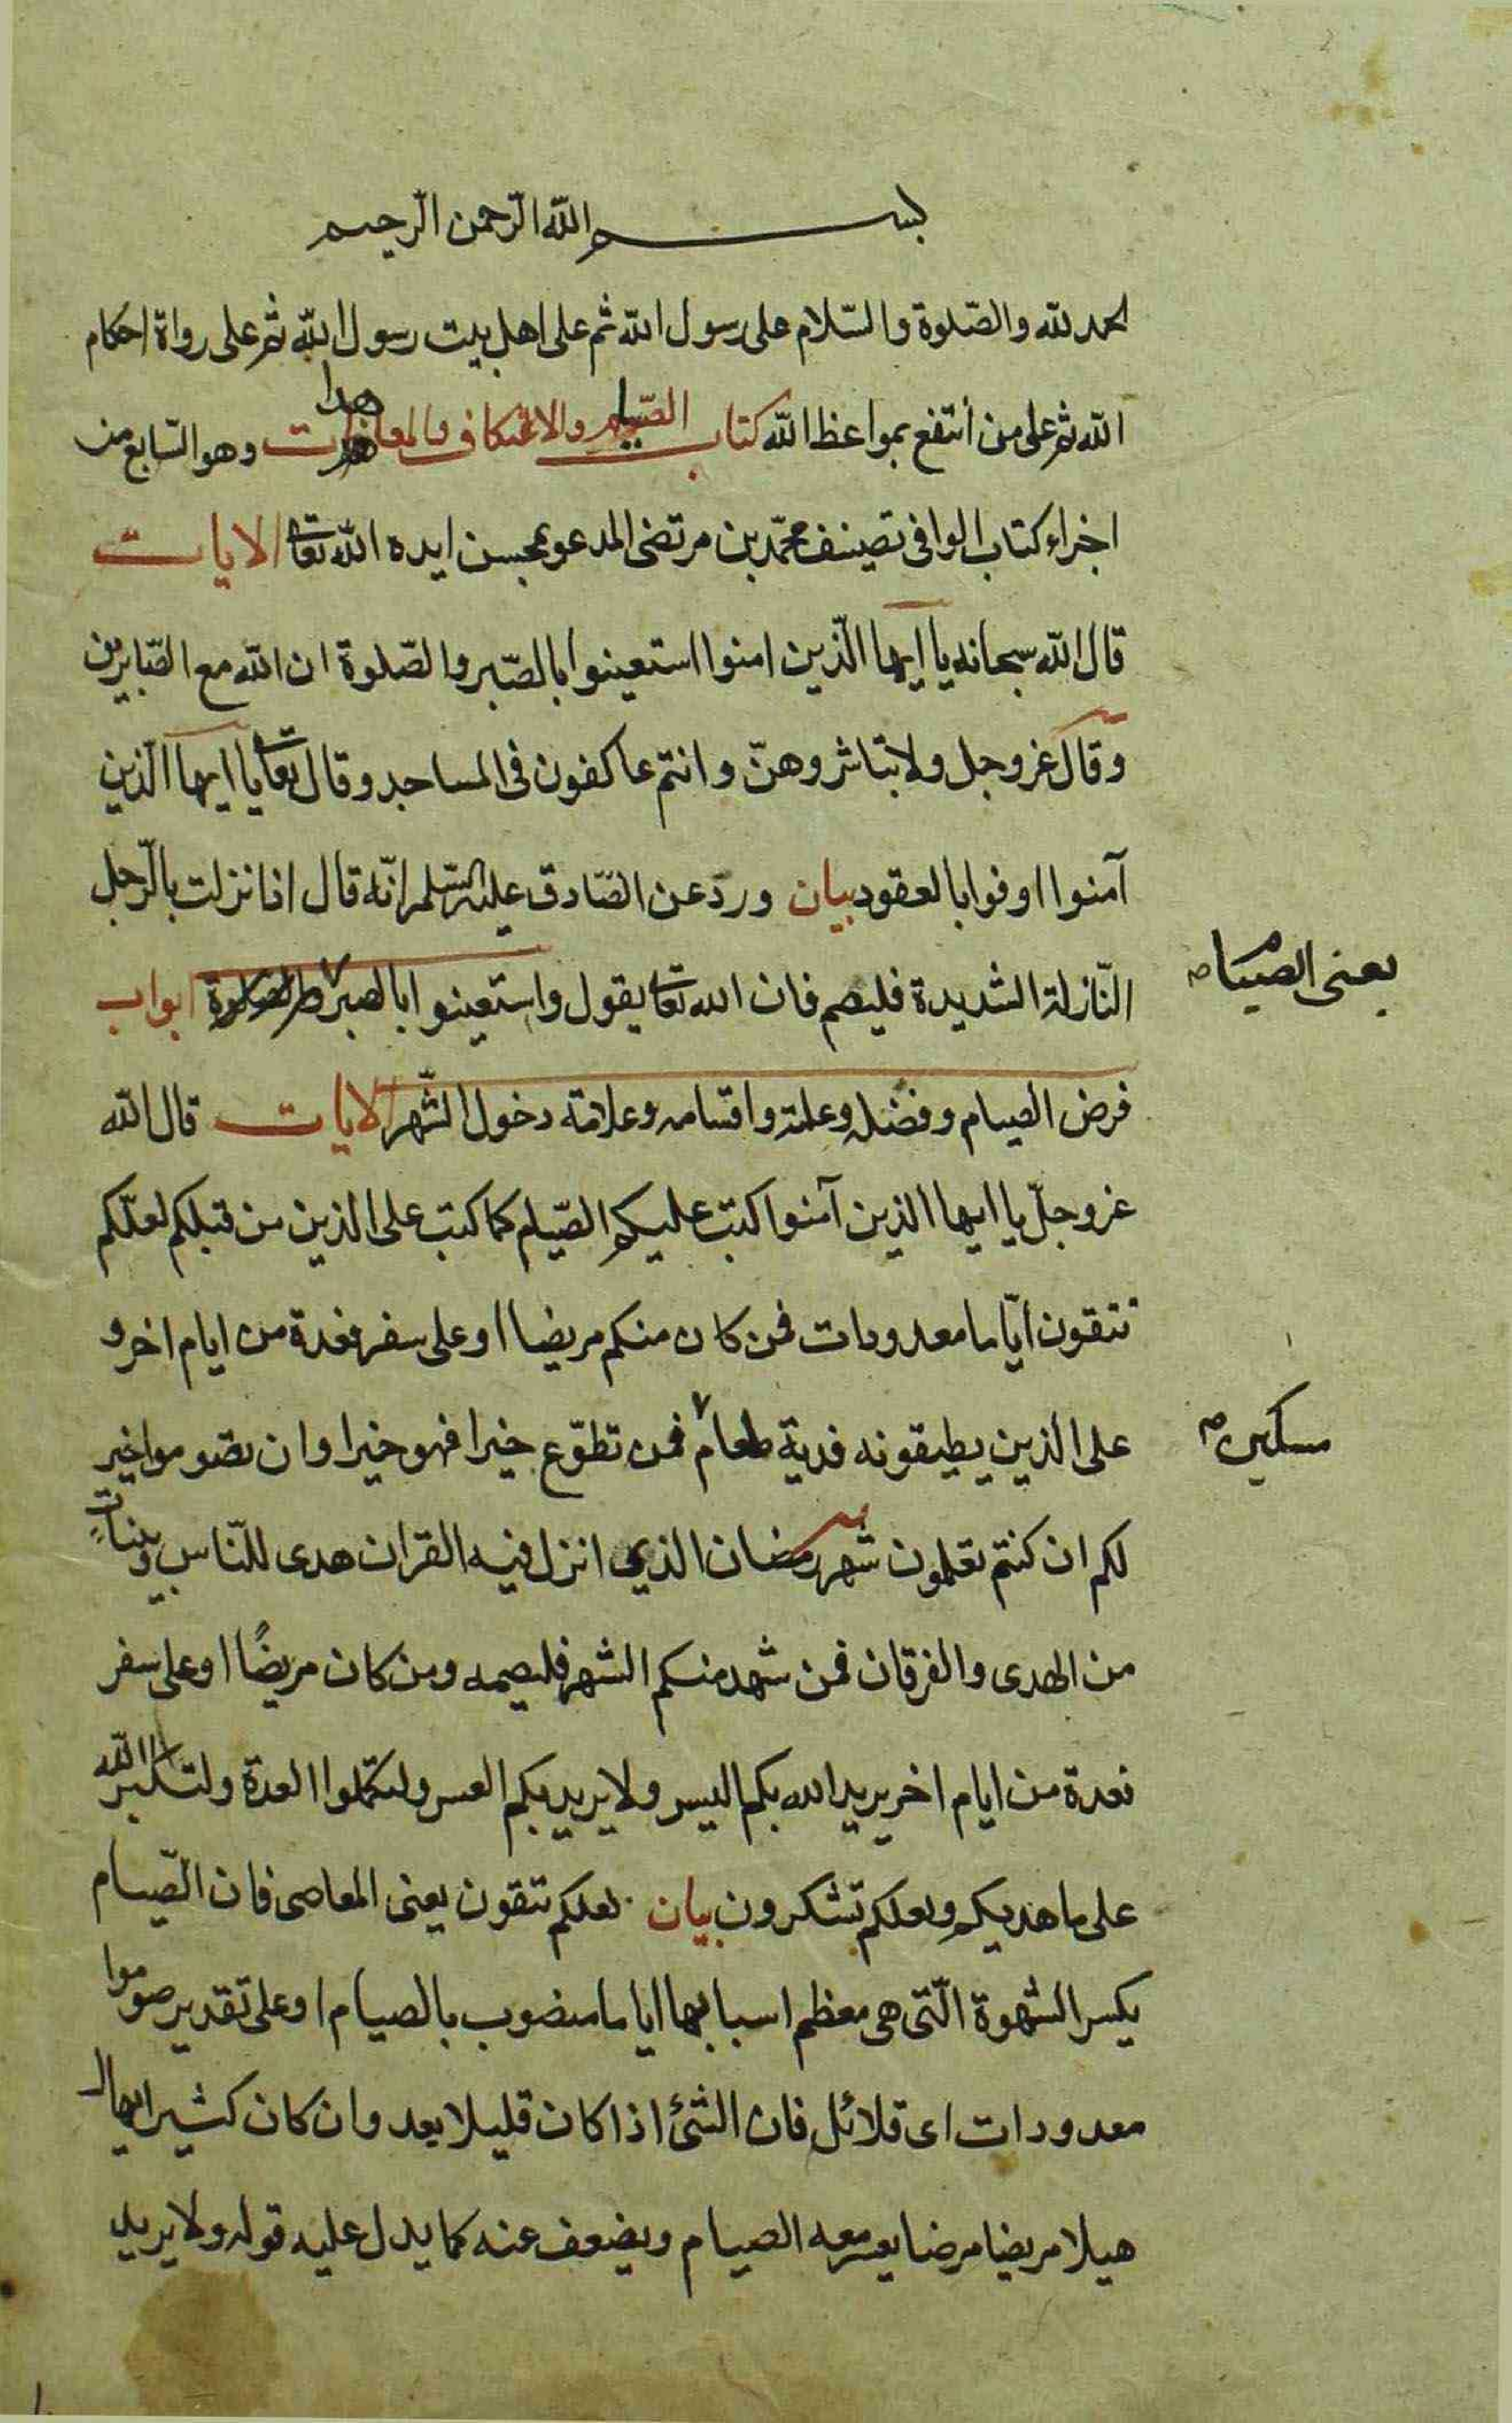 بسم الله الرّحمن الرّحيم
لحمد لله والصّلوة والسّلام على رسول الله ثم على اهل بيت رسول الله ثم على رواة احكام
الله ثم على من أنتفع بمواعظ الله كتاب الصّيام والاعتكاف والمعاهدات وهو السّابع من
اجزاء كتاب الوافى تصنيف محمّد بن مرتضى المدعو بمحسن ايده الله تعا الايات
قال الله سبحانه يا ايها الّذين امنوا استعينوا بالصّبر والصّلوة ان الله مع الصّابرين
وقال عز وجل ولا تباشروهنّ وانتم عاكفون فى المساجد وقال تعا يا ايها الّذين
آمنوا اوفوا بالعقود بيان وردّ عن الصّادق عليه السّلم انّه قال اذا نزلت بالرّجل
النّازلة الشديدة فليصم فان الله تعا يقول واستعينوا بالصبر والصلوة ابواب
يعنى الصيام ص
فرض الصيام وفضله وعلته واقسامه وعلامة دخول الشّهر الايات قال الله
عز وجلّ يا ايها الذين آمنوا كتب عليكم الصّيام كما كتب على الذين من قبلكم لعلّكم
تتقون ايّاما معدودات فمن كان منكم مريضا او على سفر فعدة من ايام اخر و
على الذين يطيقونه فدية طعام فمن تطوّع خيرا فهو خيرا وان تصوموا خير
مسكين ص
لكم ان كنتم تعلمون شهر رمضان الذي انزل فيه القران هدى للنّاس وبيناتٍ
من الهدى والفرقان فمن شهد منكم الشهر فليصمه ومن كان مريضًا او على سفر
فعدة من ايام اخر يريد الله بكم اليسر ولا يريد بكم العسر ولتكملوا العدة ولتكبروا اللّه
على ما هديكم ولعلكم تشكرون بيان لعلكم تتقون يعنى المعاصى فان الصّيام
يكسر الشهوة الّتى هى معظم اسبابها اياما منصوب بالصيام او على تقدير صوموا
معدودات اى قلائل فان الشئ اذا كان قليلا يعد وان كان كثيرا يهال
هيلا مريضا مرضا يعسر معه الصيام ويضعف عنه كما يدل عليه قوله ولا يريد